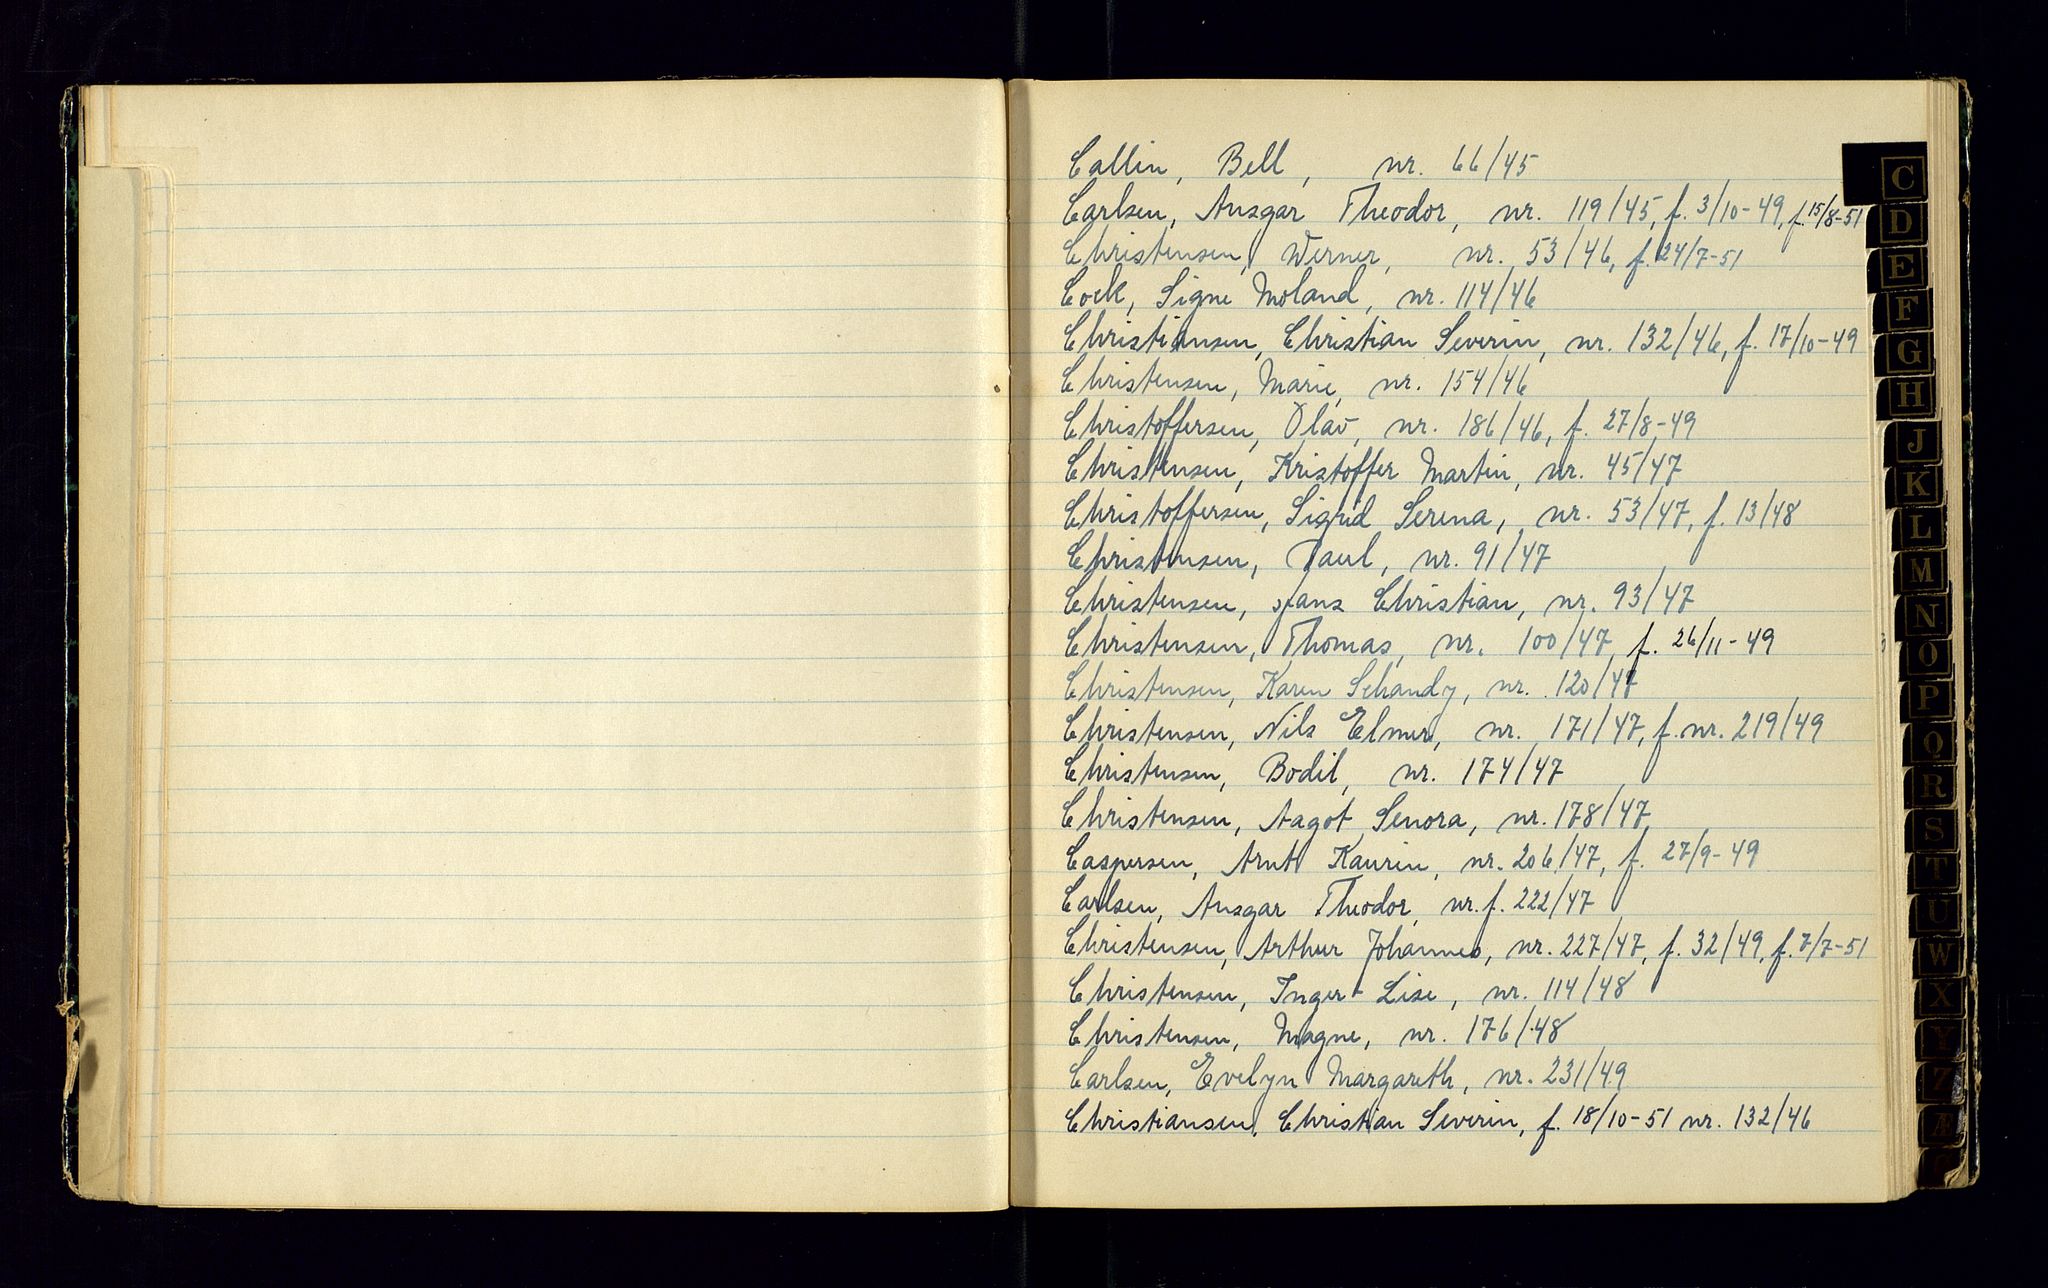 Callin, Bell, nr. 66/45
Carlsen, Ansgar Theodor, nr. 119/45, f. 3/10-49, f. 15/8-51
Christensen, Werner, nr. 53/46, f. 24/7-51
Cock, Signe Moland, nr. 114/46
Christiansen, Christian Severin, nr. 132/46, f. 17/10-49
Christensen, Marie, nr. 154/46
Christoffersen, Olav, nr. 186/46, f. 27/8-49
Christensen, Kristoffer Martin, nr. 45/47
Christoffersen, Sigrid Serena, nr. 53/47, f. 13/48
Christensen, Paul, nr. 91/47
Christensen, Hans Christian, nr. 93/47
Christensen, Thomas, nr. 100/47 f. 26/11-49
Christensen, Karen Schandy, nr. 120/47
Christensen, Nils Elmer, nr. 171/47, f. nr. 219/49
Christensen, Bodil, nr. 174/47
Christensen, Aagot Senora, nr. 178/47
Caspersen, Arnt Kaurin, nr. 206/47, f. 27/9-49
Carlsen, Ansgar Theodor, nr. f. 222/47
Christensen, Arthur Johannes, nr. 227/47, f. 32/49, f. 7/7-51
Christensen, Inger-Lise, nr. 114/48
Christensen, Magne, nr. 176/48
Carlsen, Evelyn Margareth, nr. 231/49
Christiansen, Christian Severin, f. 18/10-51 nr. 132/46
C
D
E
F
G
H
J
K
L
M
N
O
P
Q
R
S
T
U
W
X
Y
Z
Æ